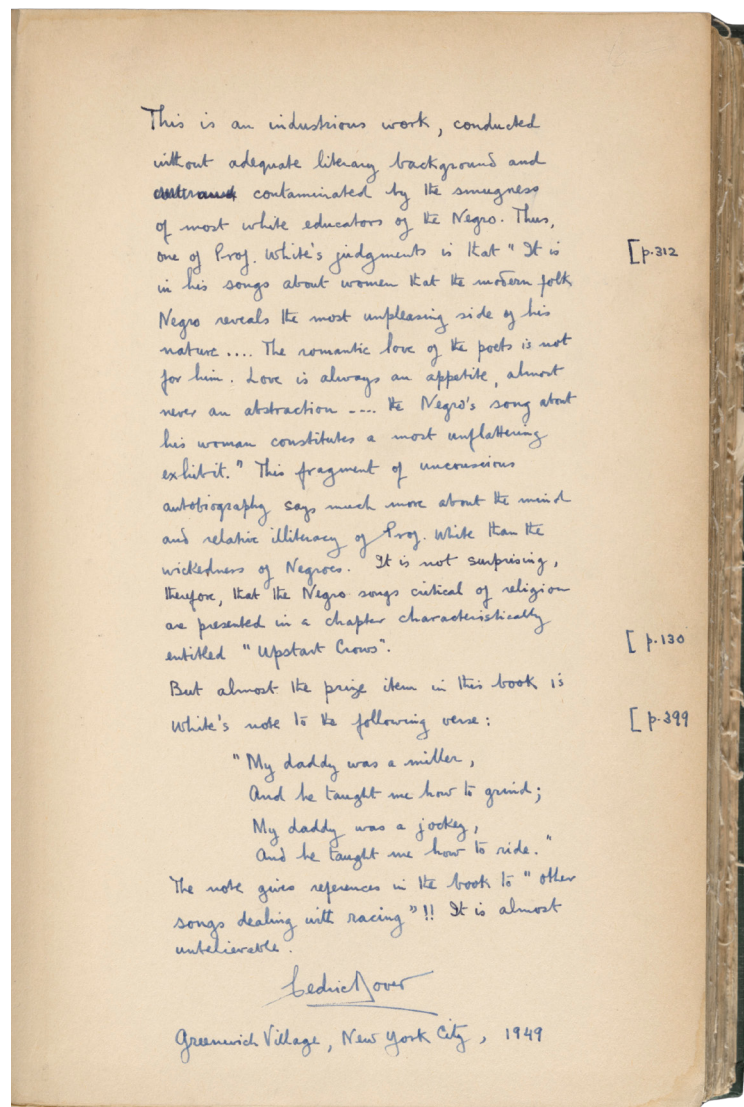 This is an industrious work, conducted
without adequate literary background and
contaminated by the smugness
of most white educators of the Negro. Thus,
one of Prof. White's judgments is that "It is
[p.312
in his songs about women that the modern folk
Negro reveals the most unpleasing side of his
nature .... The romantic love of the poets is not
for him. Love is always an appetite, almost
never an abstraction ---- the Negro's song about
his woman constitutes a most unflattering
exhibit." This fragment of unconscious
autobiography says much more about the mind
and relative illiteracy of Prof. White than the
wickedness of Negroes. It is not surprising,
therefore, that the Negro songs critical of religion
are presented in a chapter characteristically
entitled "Upstart Crows".
[p.130
But almost the prize item in this book is
White's note to the following verse:
[p.399
"My daddy was a miller,
And he taught me how to grind;
My daddy was a jockey,
And he taught me how to ride."
The note gives references in the book to "other
songs dealing with racing"!! It is almost
unbelievable.
Cedric Dover
Greenwich Village, New York City, 1949